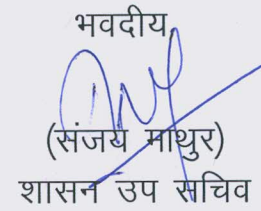 भवदीय,
(संजय माथुर)
शासन उप सचिव